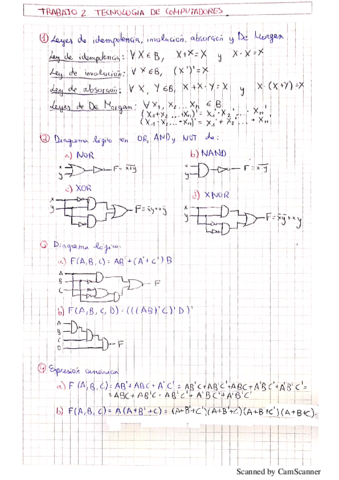 TRABAJO 2 TECNOLOGIA DE COMPUTADORES
① Leyes de idempotencia, involución, absorción y De Morgan
Ley de idempotencia: ∀X∈B, X+X=X y X·X=X
Ley de involución: ∀X∈B, (X')'=X
Ley de absorción: ∀X, Y∈B, X+X·Y=X y X·(X+Y)=X
Leyes de De Morgan: ∀X₁, X₂, ... Xn ∈ B
(X₁+X₂...+Xn)' = X₁'·X₂'·...·Xn'
(X₁·X₂...·Xn)' = X₁'+X₂'+...+Xn'
② Diagrama lógico en OR, AND y NOT de:
a) NOR b) NAND
x
y
x
y
c) XOR d) XNOR
x
y
x
y
③ Diagrama lógico:
a) F(A,B,C) = AB'+(A'+C')B
A
B
C
F
b) F(A,B,C,D) = (((AB)'C)'D)'
A
B
C
D
F
④ Expresión canónica
a) F(A,B,C) = AB'+ABC+A'C' =
b) F(A,B,C) = A(A+B'+C) =
Scanned by CamScanner